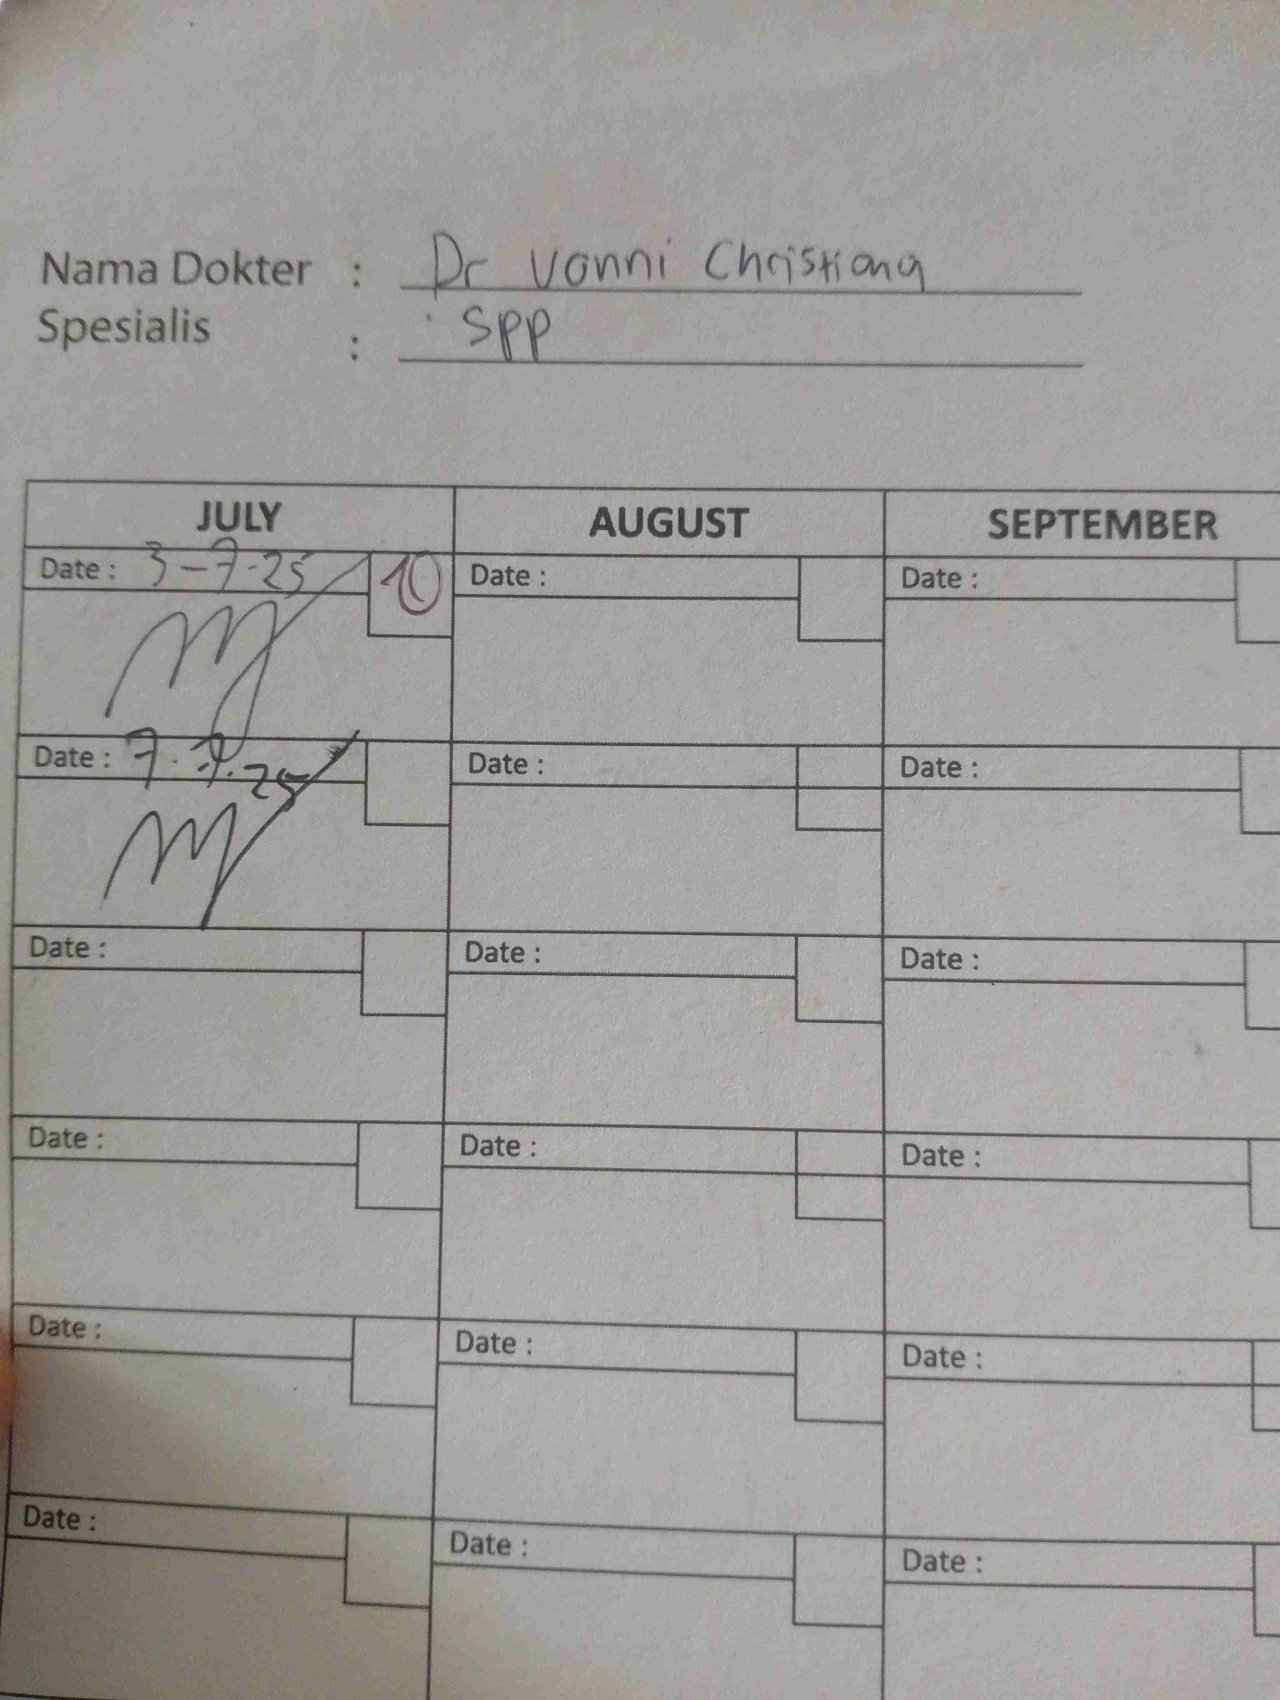 Nama Dokter : Dr Vonni Christiana
Spesialis : Spp
JULY AUGUST SEPTEMBER
Date : 3-7-25 10 Date : Date :
Date : 7.7.25 Date : Date :
Date : Date : Date :
Date : Date : Date :
Date : Date : Date :
Date : Date : Date :